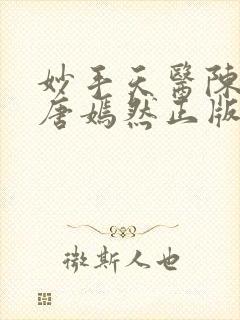 妙手天醫陳
唐嫣然正版
微斯人也